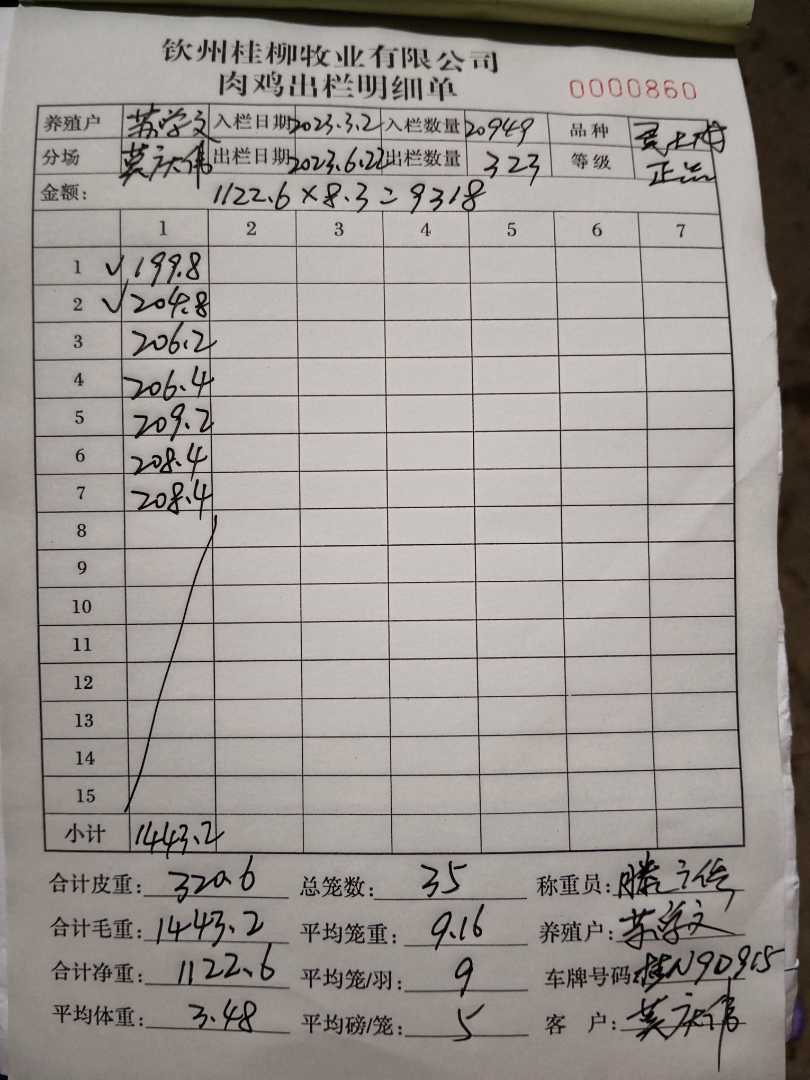 钦州桂柳牧业有限公司
肉鸡出栏明细单 0000860
养殖户 苏学文 入栏日期 2023.3.2 入栏数量 20949 品种
分场 莫庆伟 出栏日期 2023.6.22 出栏数量 323 等级 正品
金额: 1122.6×8.3=9318
1 2 3 4 5 6 7
1 ✓199.8
2 ✓204.8
3 206.2
4 206.4
5 209.2
6 208.4
7 208.4
8
9
10
11
12
13
14
15
小计 1443.2
合计皮重: 320.6 总笼数: 35 称重员:
合计毛重: 1443.2 平均笼重: 9.16 养殖户: 苏学文
合计净重: 1122.6 平均笼/羽: 9 车牌号码: 桂N9D915
平均体重: 3.48 平均磅/笼: 5 客 户: 莫庆伟